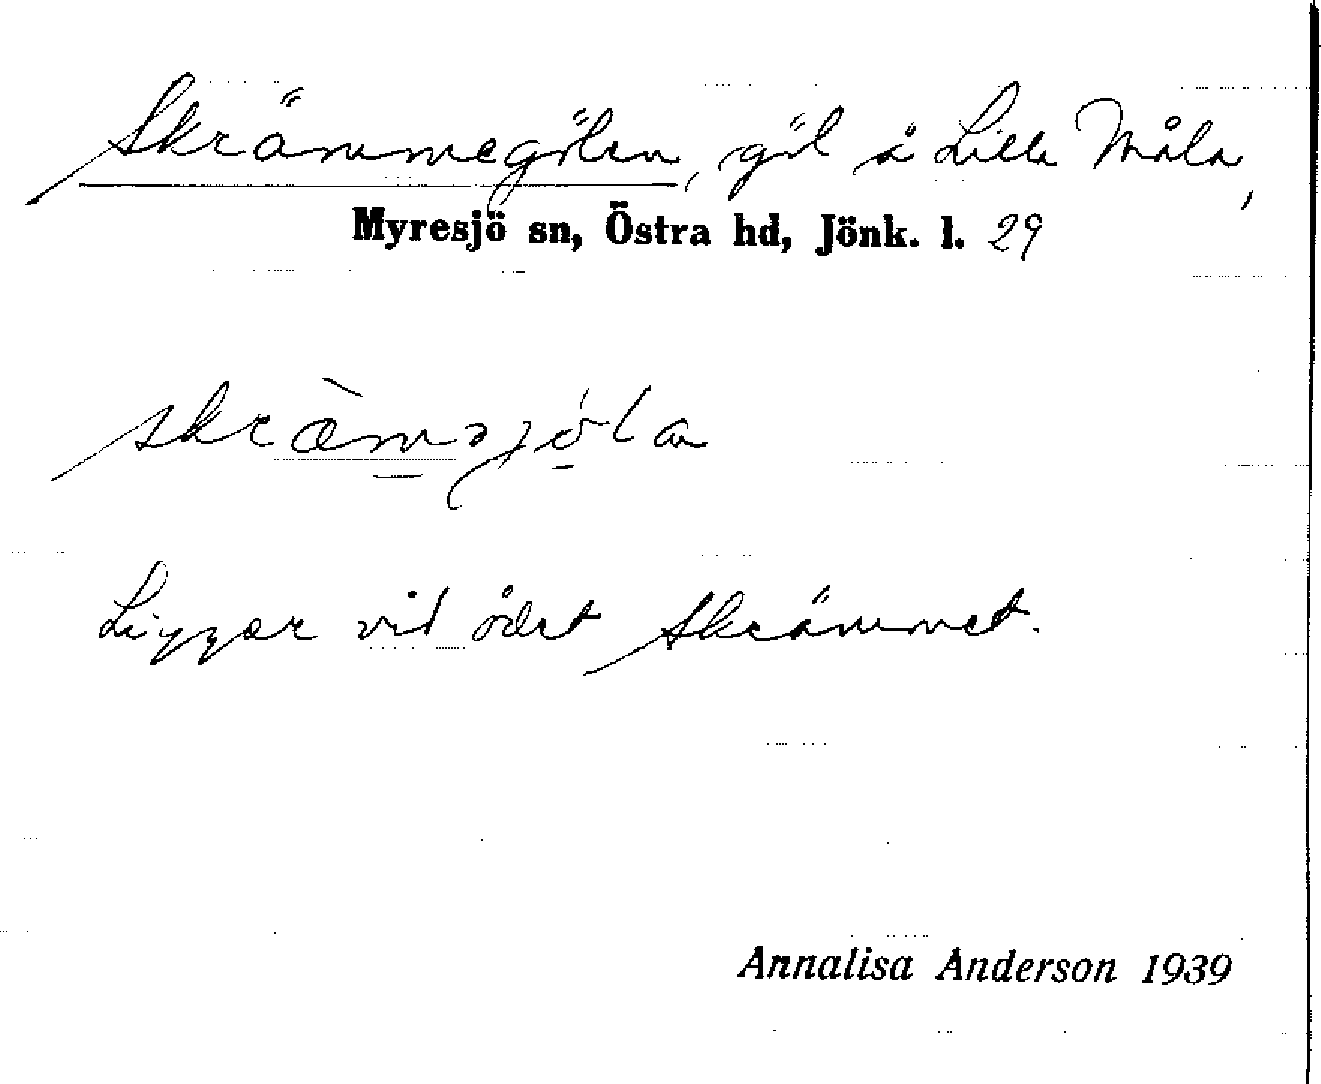 Skrämmegölen, göl å Lilla Måla,
Myresjö sn, Östra hd, Jönk. l. 29
Ligger vid ödet Skrämmet.
Annalisa Anderson 1939